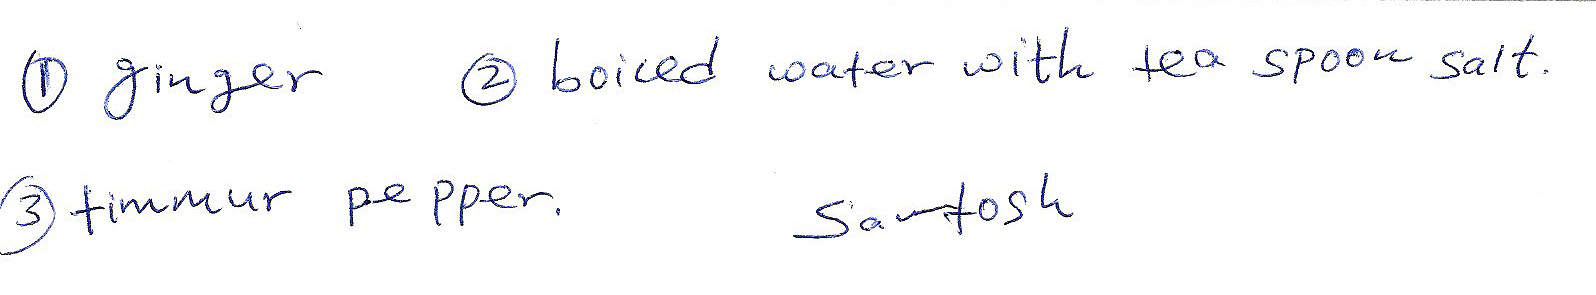 ① ginger ② boiled water with tea spoon salt.
③ timmur pepper. Santosh